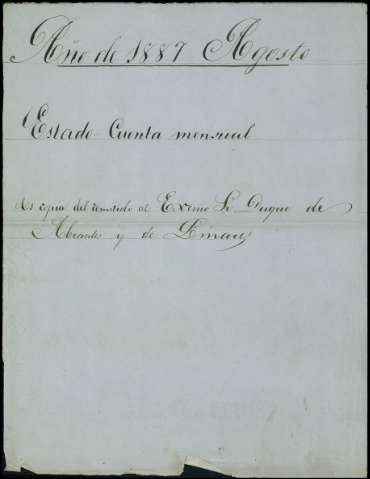 Año de 1887 Agosto
Estado Cuenta mensual
Es copia del remitido al Exmo Sr Duque de
Abrantes y de Linares